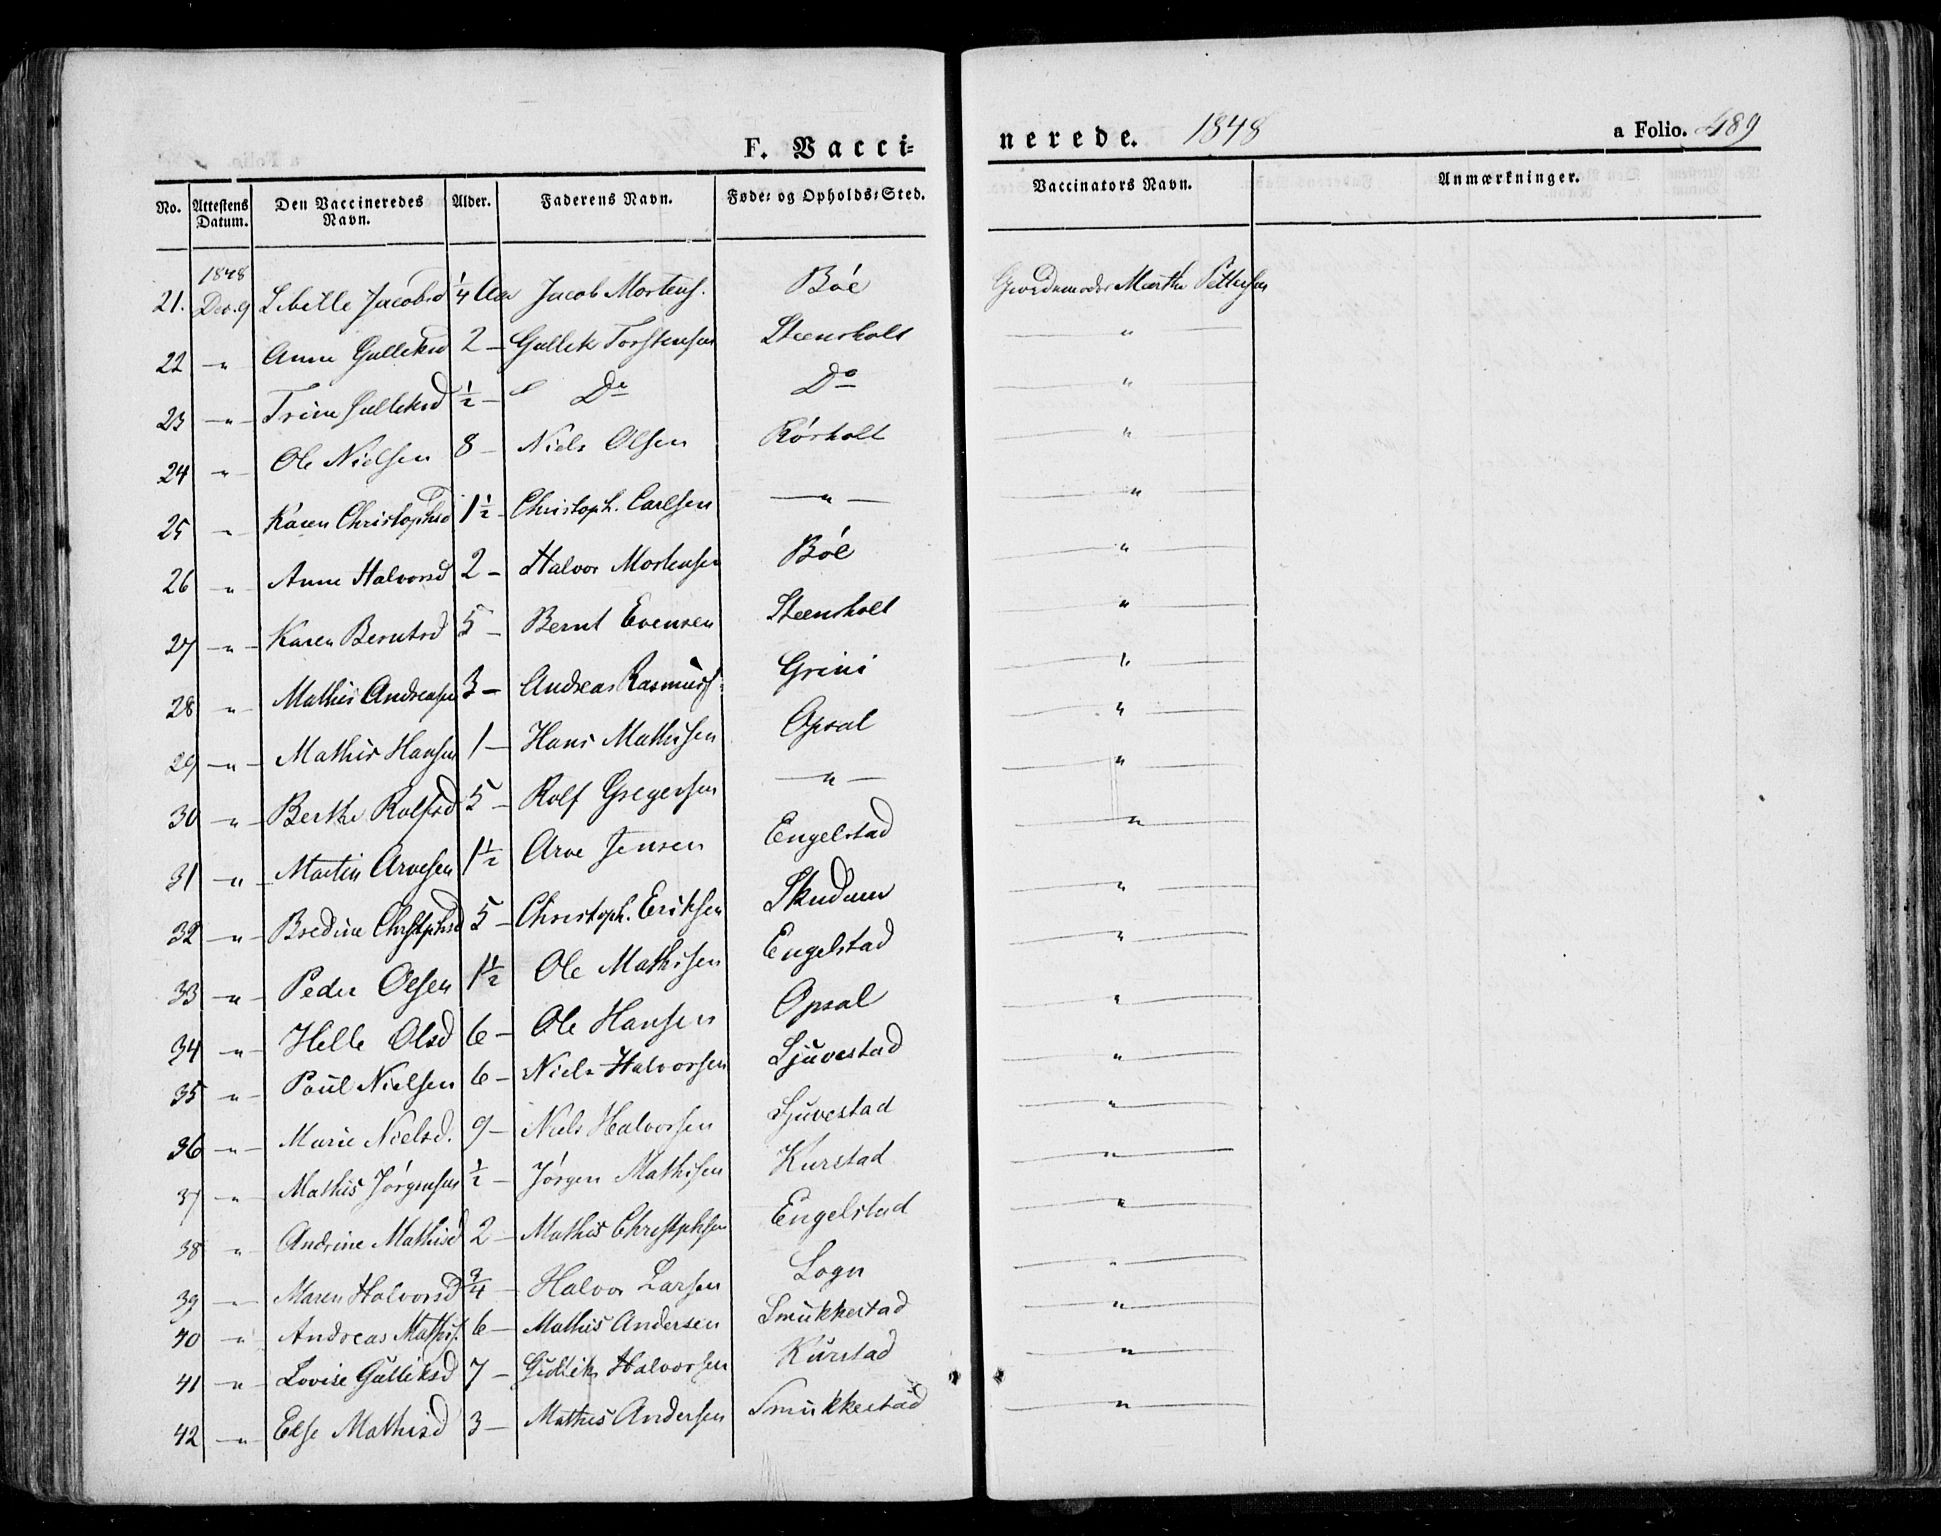 F. Vaccinerede. 1848 a Folio. 489
No. Attestens Datum. Den Vaccineredes Navn. Alder. Faderens Navn. Føde- og Opholds-Sted. Vaccinators Navn. Anmærkninger.
1848
21. Dec. 9 Sibille Jacobsd 1/4 Aar Jacob Mortens. Bøe Giordemoder Marthe Pettersen
22 " Anne Gulleksd 2 - Gullek Torstensen Steensholt "
23 " Trine Gulleksd 1/2 - Do Do "
24 " Ole Nielsen 8 - Niels Olsen Rørholt "
25 " Karen Christophsd 1 1/2 - Christoph. Carlsen " "
26 " Anne Halvorsd 2 - Halvor Mortensen Bøe "
27 " Karen Berntsd 5 - Bernt Evensen Steensholt "
28 " Mathis Andreasen 3 - Andreas Rasmuss. Grini "
29 " Mathis Hansen 1 - Hans Mathisen Opsal "
30 " Berthe Rolfsd 5 - Rolf Gregersen " "
31 " Martin Arvesen 1 1/2 Arve Jensen Engelstad "
32 " Bredine Chrstphsd 5 - Christoph. Eriksen "
33 " Peder Olsen 1 1/2 Ole Mathisen Engelstad "
34 " Helle Olsd 6 - Ole Hansen Opsal "
35 " Poul Nielsen 6 - Niels Halvorsen Ljuvestad "
36 " Marie Nielsd. 9 - Niels Halvorsen Ljuvestad "
37 " Mathis Jörgensen 1/2 - Jörgen Mathisen Kurstad "
38 " Andrine Mathisd 2 - Mathis Christphsen Engelstad "
39 " Maren Halvorsd 3/4 - Halvor Larsen Logn "
40 " Andreas Mathis. 6 - Mathis Andersen Smukkestad "
41 " Lovise Gulliksd 7 - Gullik Halvorsen Kurstad "
42 " Else Mathisd 3 - Mathis Andersen Smukkestad "